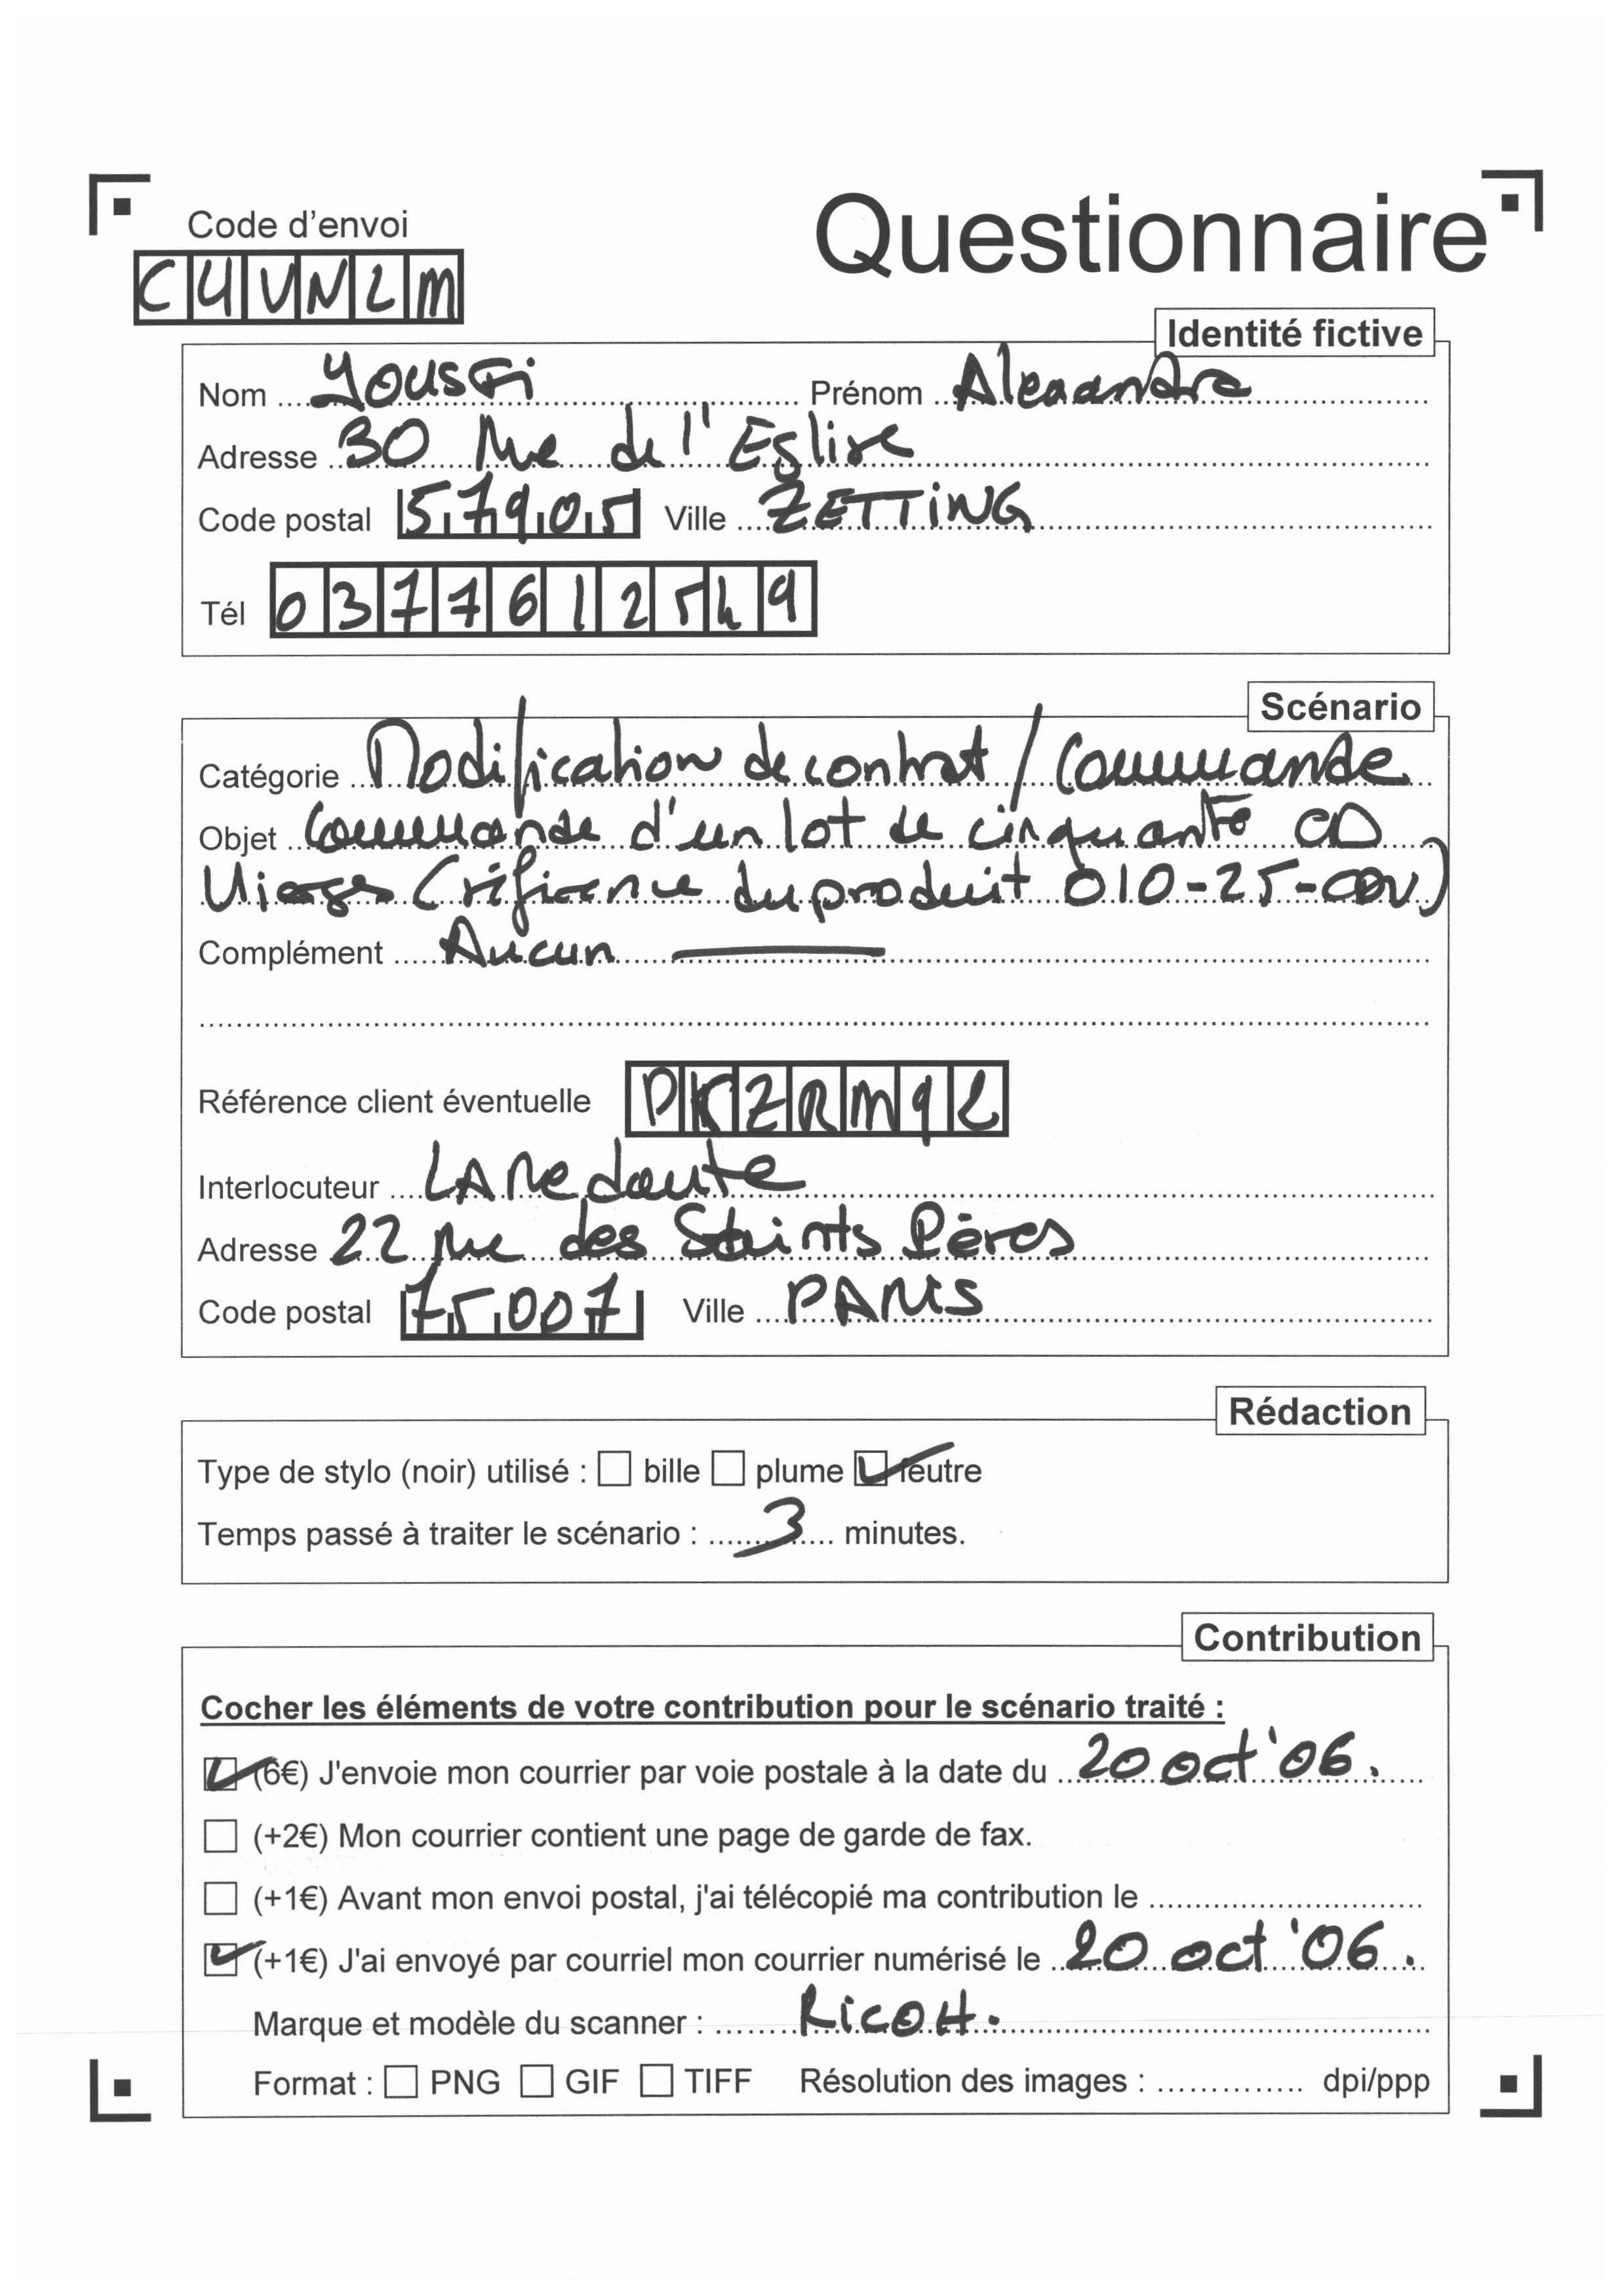 Code d'envoi
Questionnaire
C4VNLM
Identité fictive
Nom Youssfi Prénom Alexandra
Adresse 30 Rue de l'Eglise
Code postal 57905 Ville ZETTING
Tél 0377612549
Scénario
Catégorie Modification de contrat / Commande
Objet Commande d'un lot de cinquante CD
Vierges (référence du produit 010-25-CDV)
Complément Aucun
Référence client éventuelle PKZRM9L
Interlocuteur LA Redoute
Adresse 22 rue des Saints Pères
Code postal 75007 Ville PARIS
Rédaction
Type de stylo (noir) utilisé : bille plume feutre
Temps passé à traiter le scénario : 3 minutes.
Contribution
Cocher les éléments de votre contribution pour le scénario traité :
(6€) J'envoie mon courrier par voie postale à la date du 20 oct '06.
(+2€) Mon courrier contient une page de garde de fax.
(+1€) Avant mon envoi postal, j'ai télécopié ma contribution le
(+1€) J'ai envoyé par courriel mon courrier numérisé le 20 oct '06.
Marque et modèle du scanner : RICOH.
Format : PNG GIF TIFF Résolution des images : dpi/ppp